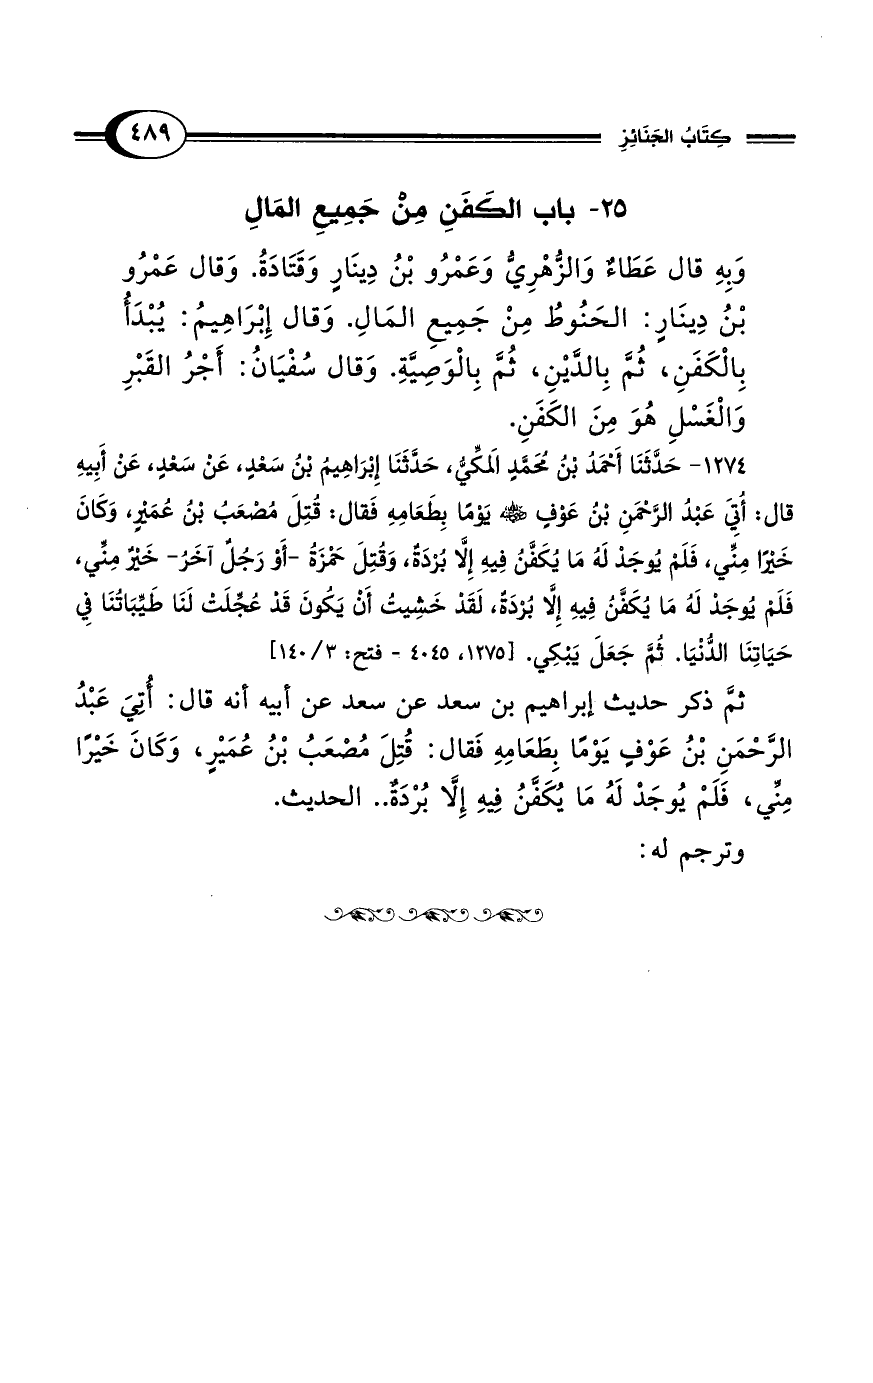 كِتَابُ الجَنَائِزِ ٤٨٩
٢٥- باب الكَفَنِ مِنْ جَمِيعِ المَالِ
وَبِهِ قال عَطَاءٌ وَالزُّهْرِيُّ وَعَمْرُو بْنُ دِينَارٍ وَقَتَادَةُ. وَقال عَمْرُو
بْنُ دِينَارٍ: الحَنُوطُ مِنْ جَمِيعِ المَالِ. وَقال إِبْرَاهِيمُ: يُبْدَأُ
بِالْكَفَنِ، ثُمَّ بِالدَّيْنِ، ثُمَّ بِالْوَصِيَّةِ. وَقال سُفْيَانُ: أَجْرُ القَبْرِ
وَالْغَسْلِ هُوَ مِنَ الكَفَنِ.
١٢٧٤- حَدَّثَنَا أَحْمَدُ بْنُ مُحَمَّدٍ المَكِّيُّ، حَدَّثَنَا إِبْرَاهِيمُ بْنُ سَعْدٍ، عَنْ سَعْدٍ، عَنْ أَبِيهِ
قال: أُتِيَ عَبْدُ الرَّحْمَنِ بْنُ عَوْفٍ رضي الله عنه يَوْمًا بِطَعَامِهِ فَقال: قُتِلَ مُصْعَبُ بْنُ عُمَيْرٍ، وَكَانَ
خَيْرًا مِنِّي، فَلَمْ يُوجَدْ لَهُ مَا يُكَفَّنُ فِيهِ إِلَّا بُرْدَةٌ، وَقُتِلَ حَمْزَةُ -أَوْ رَجُلٌ آخَرُ- خَيْرٌ مِنِّي،
فَلَمْ يُوجَدْ لَهُ مَا يُكَفَّنُ فِيهِ إِلَّا بُرْدَةٌ، لَقَدْ خَشِيتُ أَنْ يَكُونَ قَدْ عُجِّلَتْ لَنَا طَيِّبَاتُنَا فِي
حَيَاتِنَا الدُّنْيَا. ثُمَّ جَعَلَ يَبْكِي. [١٢٧٥، ٤٠٤٥ - فتح: ٣/ ١٤٠]
ثمَّ ذكر حديث إبراهيم بن سعد عن سعد عن أبيه أنه قال: أُتِيَ عَبْدُ
الرَّحْمَنِ بْنُ عَوْفٍ يَوْمًا بِطَعَامِهِ فَقال: قُتِلَ مُصْعَبُ بْنُ عُمَيْرٍ، وَكَانَ خَيْرًا
مِنِّي، فَلَمْ يُوجَدْ لَهُ مَا يُكَفَّنُ فِيهِ إِلَّا بُرْدَةٌ.. الحديث.
وترجم له: